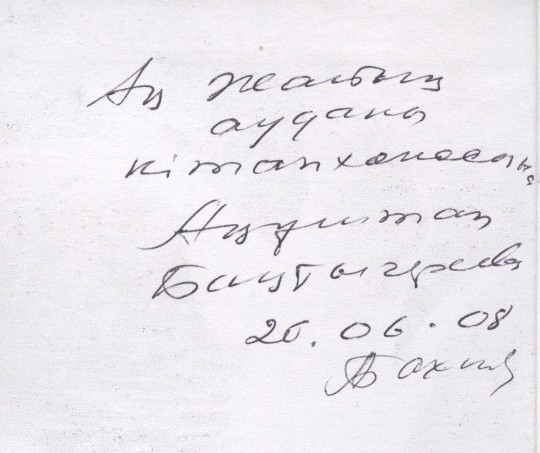 Ақ жайық
ауданы
кітапханасына
Ақуштап
Бақтыгереева
26.06.08